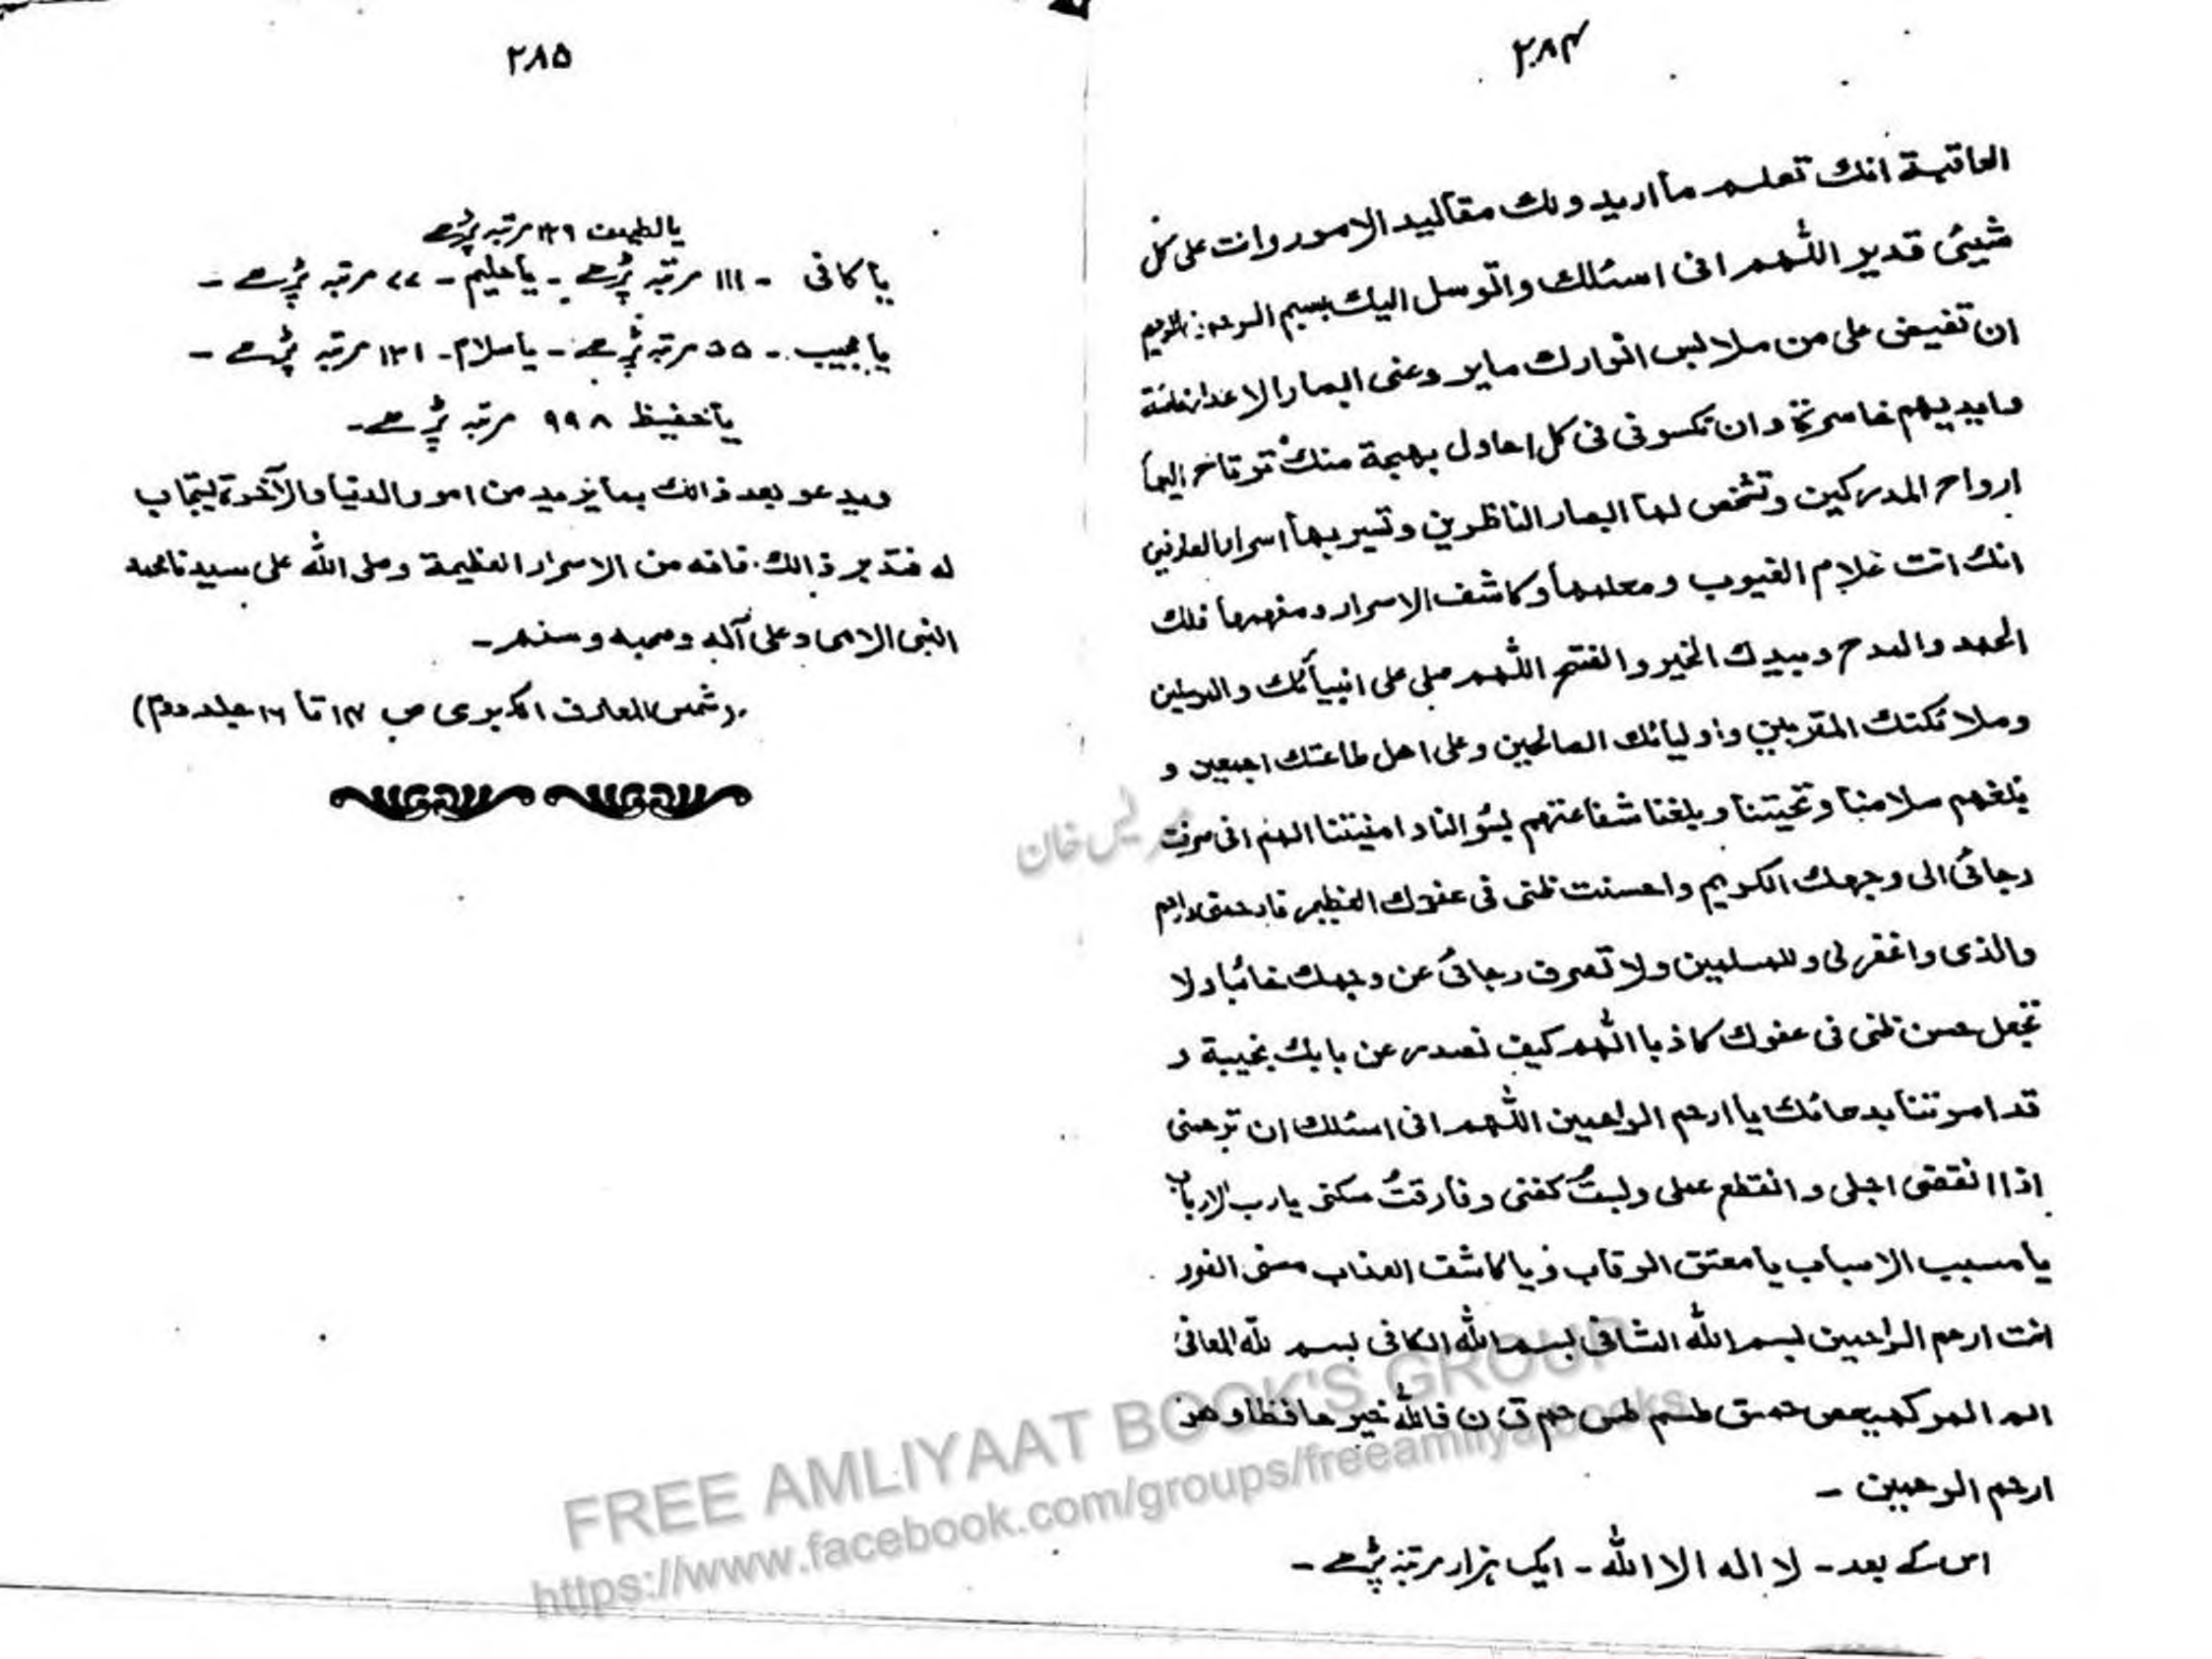 ۲۸۴
العاقبة انك تعلم ما اريد ولك مقاليد الامور وانت على كل
شيئ قدير اللهم انى اسئلك واتوسل اليك بسم الرحمن الرحيم
ان تفيض على من ملابس انوارك ما يرد عنى ابصار الاعداء
وايديهم خاسرة وان تكسونى فى كل احاول بهجة منك ترتاح اليها
ارواح المدركين وتشخص لها ابصار الناظرين وتسير بها اسرار العارفين
انك انت غلام الغيوب ومعلمها وكاشف الاسرار ومفهمها فلك
الحمد والمدح وبيدك الخير والفتح اللهم صلى على انبيائك والمرسلين
وملائكتك المقربين واوليائك الصالحين وعلى اهل طاعتك اجمعين و
بلغهم سلامنا وتحيتنا وبلغنا شفاعتهم بسؤالنا وامنيتنا الهم انى صرفت
رجائى الى وجهك الكريم واحسنت ظنى فى عفوك العظيم فارحمنى وارحم
والذى واغفرلى وللمسلمين ولا تصرف رجائى عن وجهك خائبا ولا
تجعل حسن ظنى فى عفوك كاذبا اللهم كيف نصدر عن بابك بخيبة و
قد امرتنا بدعائك يا ارحم الراحمين اللهم انى اسئلك ان ترحمنى
اذا انقضى اجلى وانقطع عملى ولبستُ كفنى وفارقتُ سكنى يا رب الارباب
يا مسبب الاسباب يا معتق الرقاب ويا كاشف العذاب مسنى الضر
انت ارحم الراحمين بسم الله الشافى بسم الله الكافى بسم لله المعافى
الم المر كهيعص حمعسق طسم طس حم ق ن فالله خير حافظا وهو
ارحم الرحمين -
اس کے بعد - لا اله الا الله - ایک ہزار مرتبہ پڑھے -
۲۸۵
یا لطیف ۱۲۹ مرتبہ پڑھے
یا کافی - ۱۱۱ مرتبہ پڑھے - یا حلیم - ۷۷ مرتبہ پڑھے -
یا مجیب - ۵۵ مرتبہ پڑھے - یا سلام - ۱۳۱ مرتبہ پڑھے -
یا حفیظ ۹۹۸ مرتبہ پڑھے -
ويدعو بعد ذالك بما يزيد من امور الدنيا والآخرة يستجاب
له فتدبر ذالك فانه من الاسرار العظيمة وصلى الله على سيدنا محمد
النبى الامى وعلى آله وصحبه وسلم -
(شمس المعارف الكبرى ص ۱۴ تا ۱۶ جلد دوم)
خان
FREE AMLIYAAT BOOK'S GROUP
https://www.facebook.com/groups/freeamliyatbooks